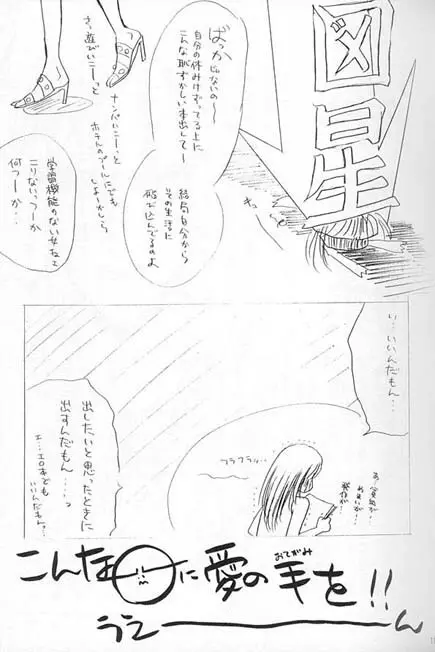 図星
ばっか
じゃないの〜
自分の体みけずってる上に
こんな恥ずかしい本出して〜
結局自分から
その生活に
飛び込んでるのよ
さっ遊びいこーっと
ナンパいこーっと
ホテルのプールにでも
しよーかしら
学習機能のない女ねェ
こりないっつーか
何つーか…
い…いいんだもん…
あ、貧血が
めまいが…
発作が…
フラフラッ…
出したいと思ったときに
出すんだもん…っ
エ…エロ本でも
いいんだもんっ…
こんな に愛の手を!!
おてがみ
うえーーーん